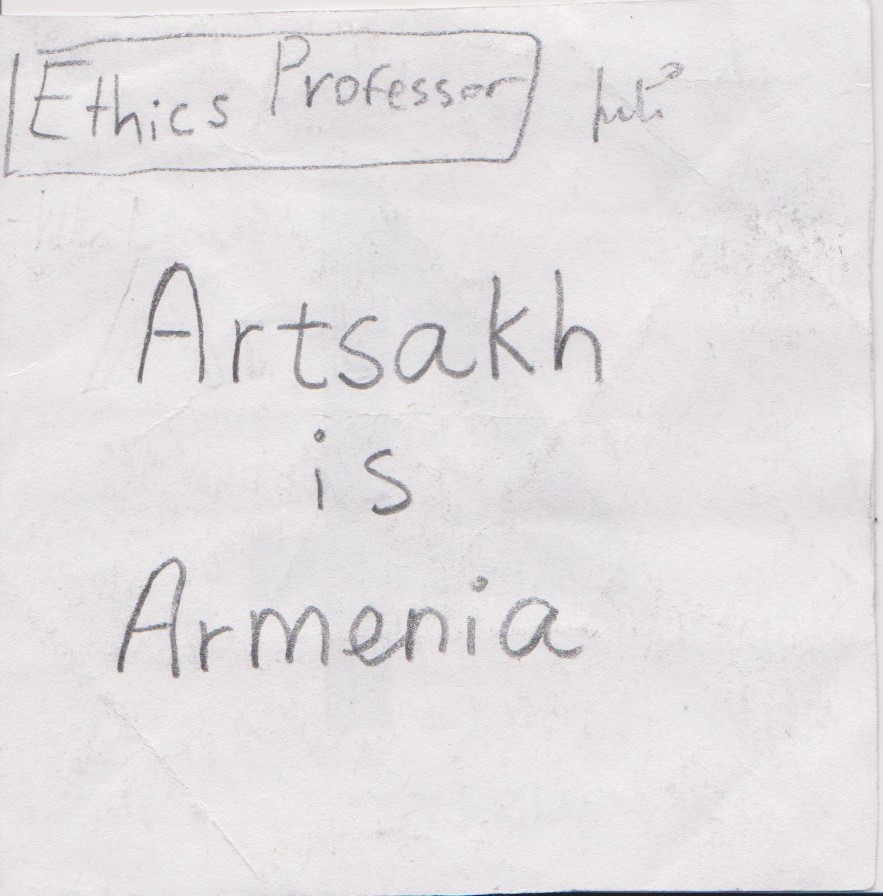 Ethics Professor
Artsakh
is
Armenia